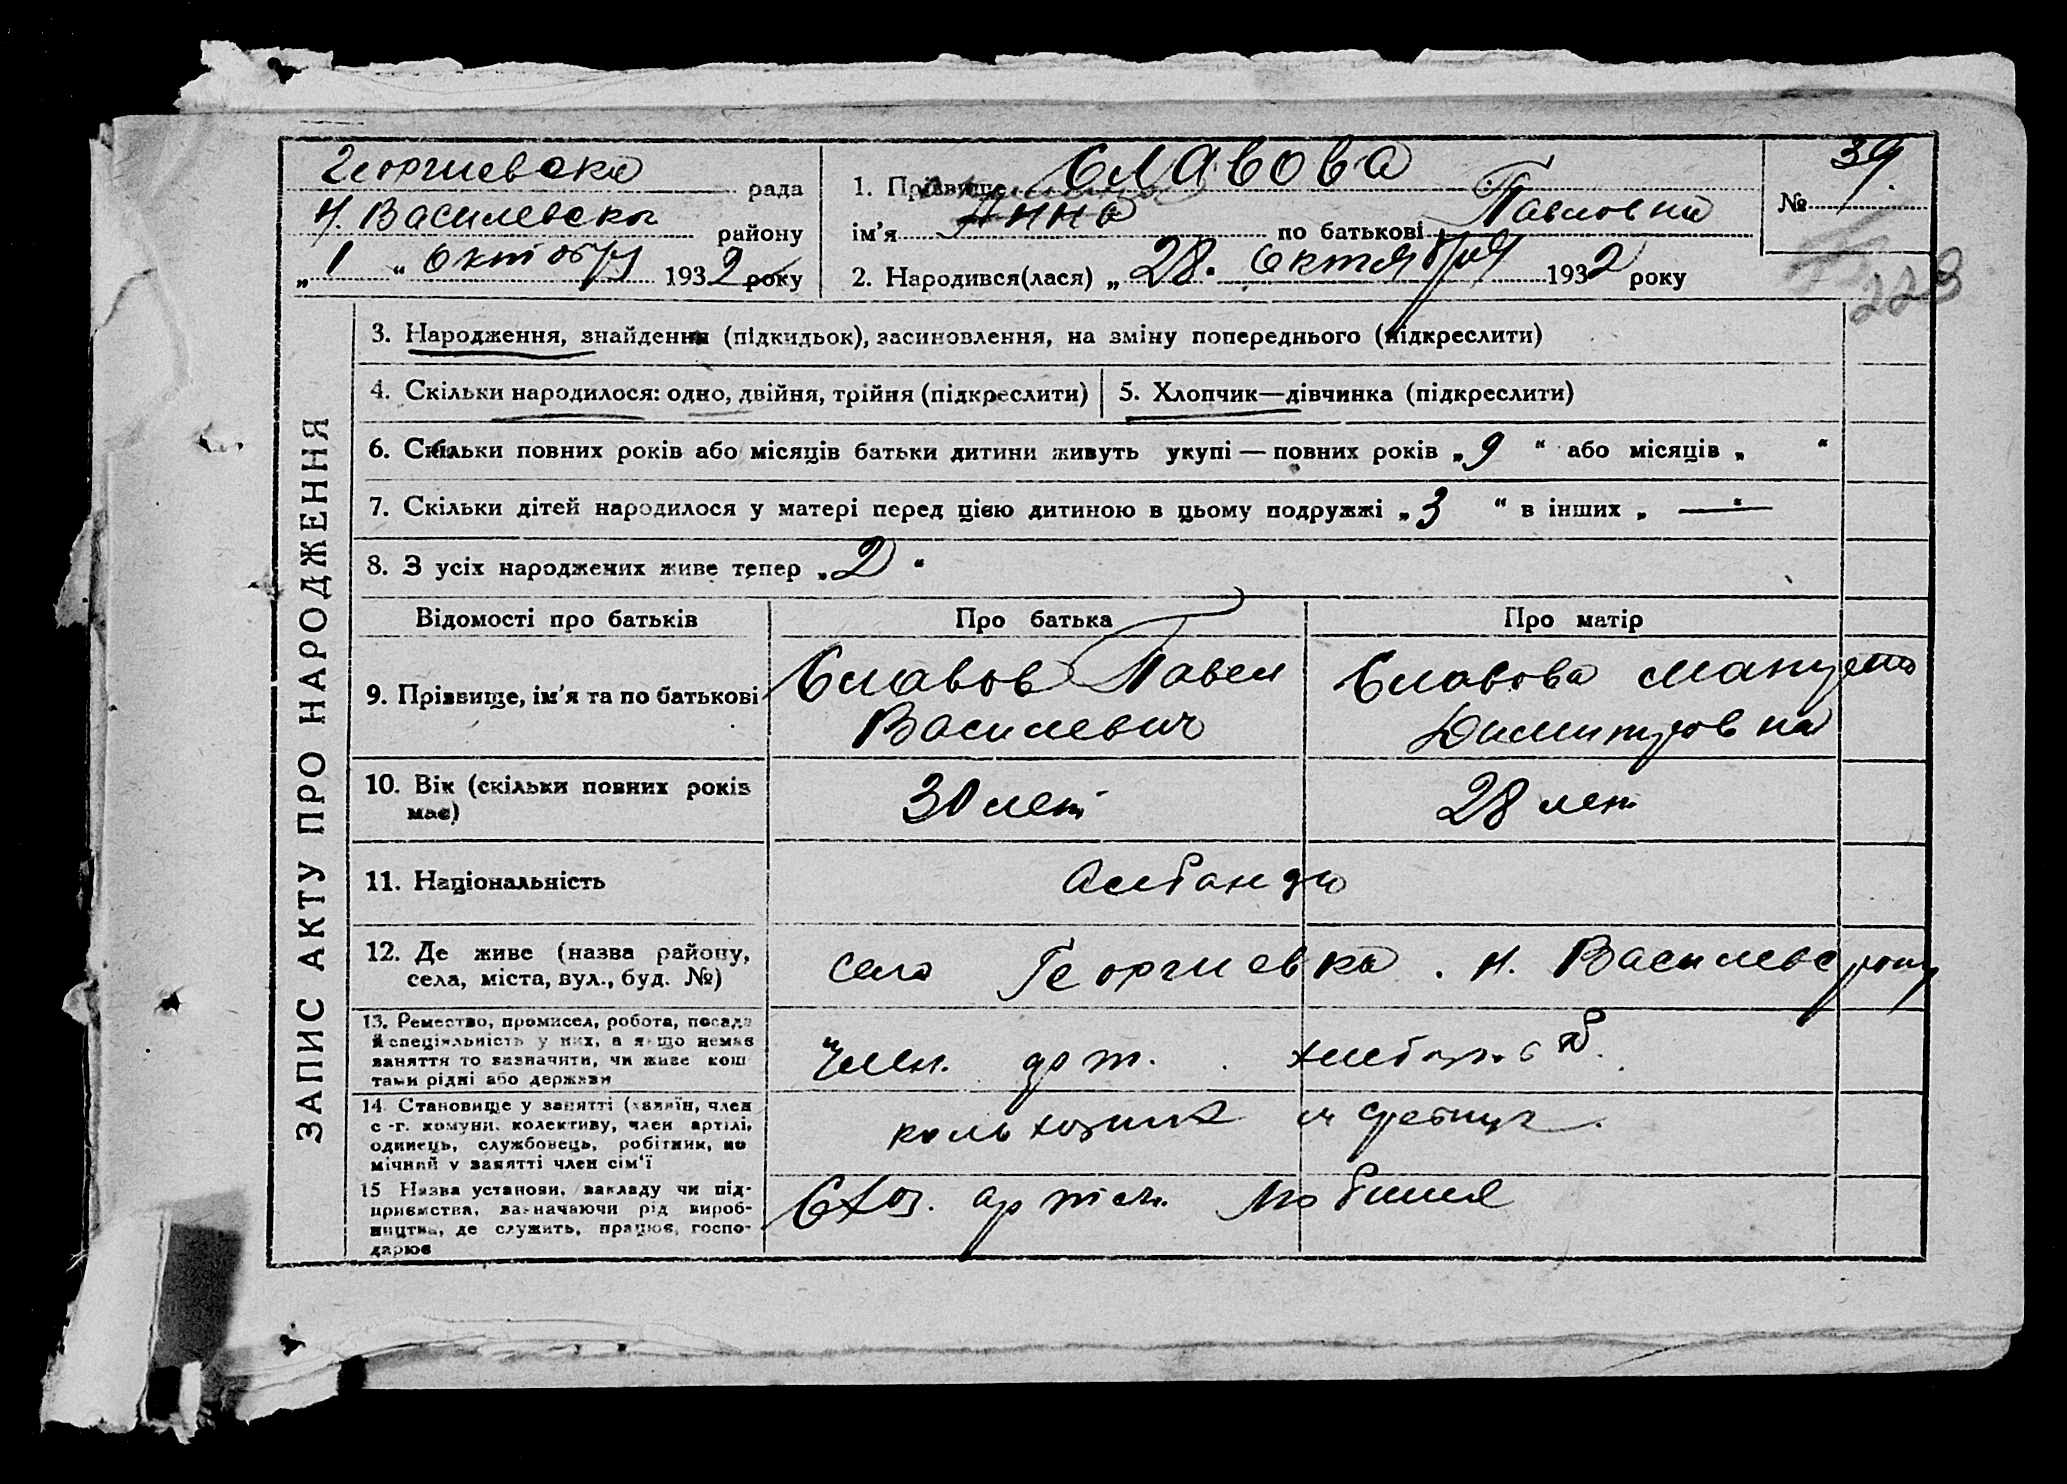 Георгиевска рада
Н. Василевска району
„ 1 “ Октобря 1932 року
1. Прізвище Славова
ім'я Анна по батькові Павловна
2. Народився(лася) „ 28. Октября 1932 року
№ 39.
223
ЗАПИС АКТУ ПРО НАРОДЖЕННЯ
3. Народження, знайдення (підкидьок), засиновлення, на зміну попереднього (підкреслити)
4. Скільки народилося: одно, двійня, трійня (підкреслити)
5. Хлопчик—дівчинка (підкреслити)
6. Скільки повних років або місяців батьки дитини живуть укупі — повних років „ 9 “ або місяців „ “
7. Скільки дітей народилося у матері перед цією дитиною в цьому подружжі „ 3 “ в інших „ — “
8. З усіх народжених живе тепер „ 2 “
Відомості про батьків Про батька Про матір
9. Прізвище, ім'я та по батькові
Славов Павел
Василевич
Славова
Димитровна
10. Вік (скільки повних років
має)
30 лет
28 лет
11. Національність
Албанцы
12. Де живе (назва району,
села, міста, вул., буд. №)
село Георгиевка. Н. Василевс району
13. Ремество, промисел, робота, посада
й спеціяльність у них, а якщо немає
заняття то зазначити, чи живе кош
тами рідні або держави
Член. арт.
14. Становище у занятті (хазяїн, член
с.-г. комуни, колективу, член артілі,
одинець, службовець, робітник, по
мічний у занятті член сім'ї
колхозник и
15 Назва установи, закладу чи під-
приємства, зазначаючи рід вироб-
ництва, де служить, працює, госпо-
дарює
Схоз. артел.